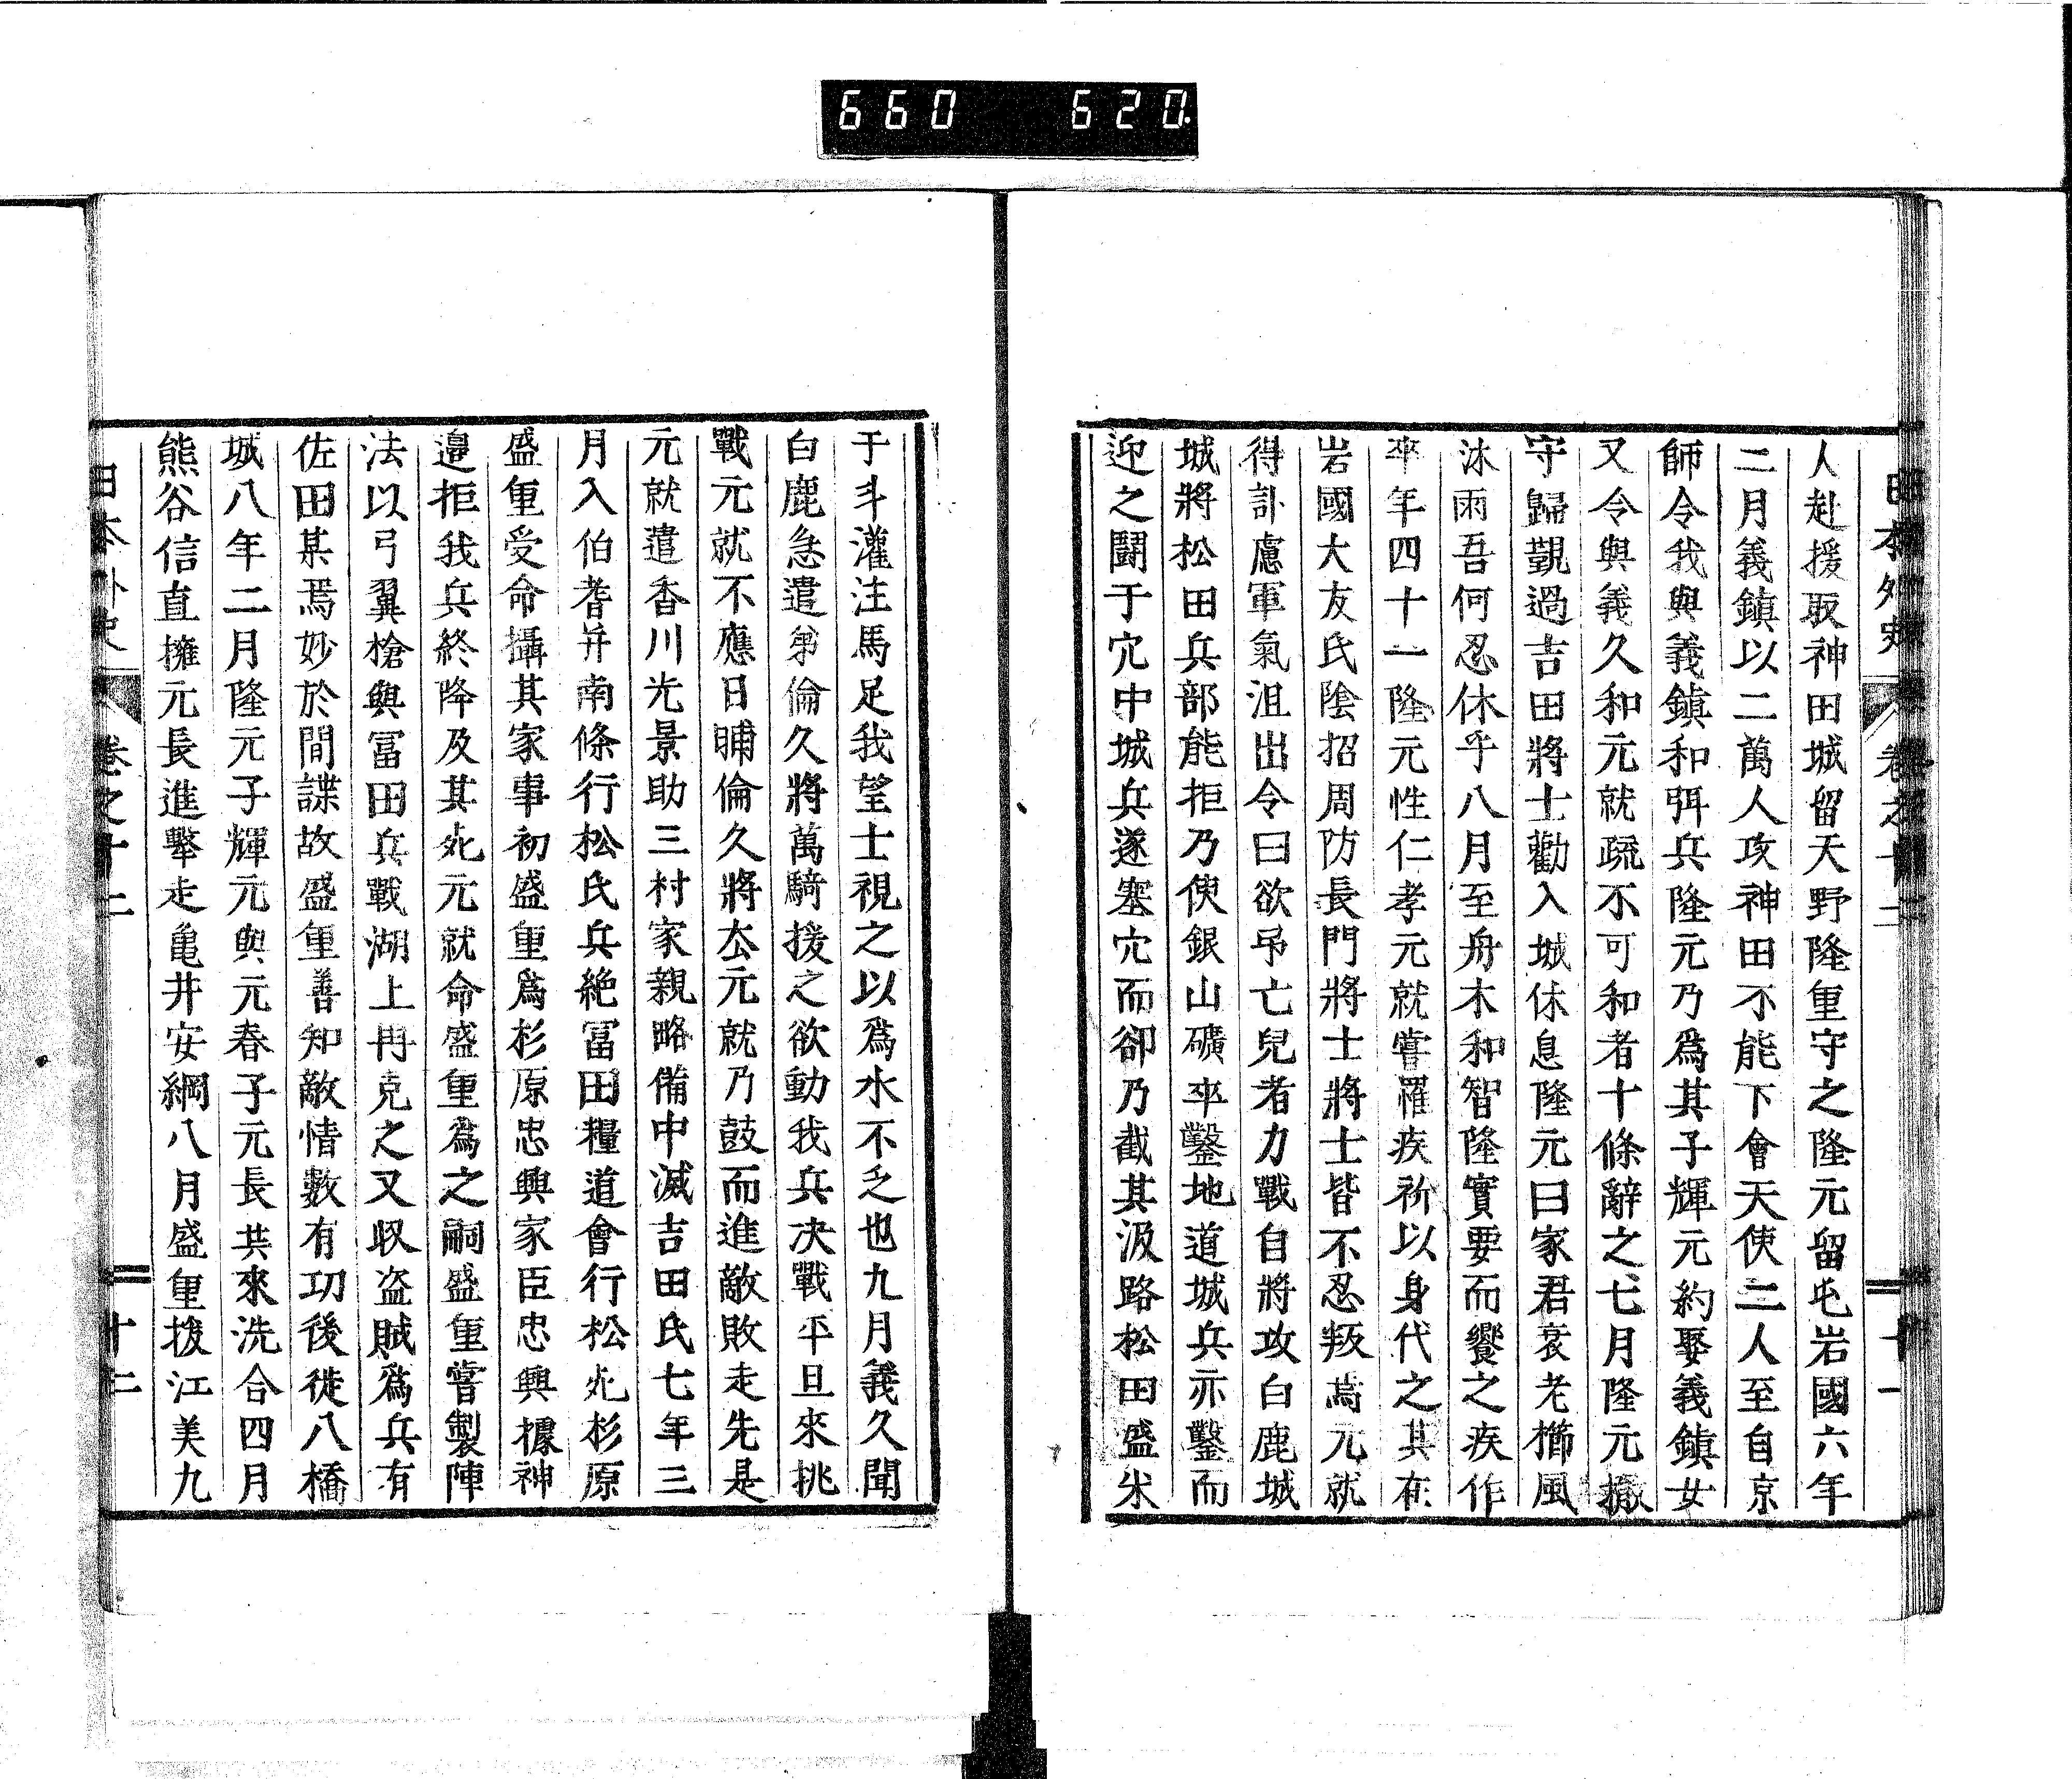 660 620.
日本外史 卷之十二 十一
人赴援取神田城留天野隆重守之隆元留屯岩國六年
二月義鎮以二萬人攻神田不能下會天使二人至自京
師令我與義鎮和弭兵隆元乃爲其子輝元約娶義鎮女
又令與義久和元就疏不可和者十條辭之七月隆元撤
守歸觀過吉田將士勸入城休息隆元曰家君衰老櫛風
沐雨吾何忍休乎八月至舟木和智隆實要而饗之疾作
卒年四十一隆元性仁孝元就嘗罹疾祈以身代之其在
岩國大友氏陰招周防長門將士將士皆不忍叛焉元就
得訃慮軍氣沮出令曰欲吊亡兒者力戰自將攻白鹿城
城將松田兵部能拒乃使銀山礦卒鑿地道城兵亦鑿而
迎之鬪于穴中城兵遂塞穴而卻乃截其汲路松田盛米
于斗灌注馬足我望士視之以爲水不乏也九月義久聞
白鹿急遣弟倫久將萬騎援之欲動我兵决戰平旦來挑
戰元就不應日晡倫久將去元就乃鼓而進敵敗走先是
元就遣香川光景助三村家親略備中滅吉田氏七年三
月入伯耆并南條行松氏兵絶冨田糧道會行松死杉原
盛重受命攝其家事初盛重爲杉原忠興家臣忠興據神
邉拒我兵終降及其死元就命盛重爲之嗣盛重嘗製陣
法以弓翼槍與冨田兵戰湖上再克之又収盗賊爲兵有
佐田某焉妙於間諜故盛重善知敵情數有功後徙八橋
城八年二月隆元子輝元與元春子元長共來洗合四月
熊谷信直擁元長進擊走亀井安綱八月盛重拔江美九
日本外史 卷之十二 十二